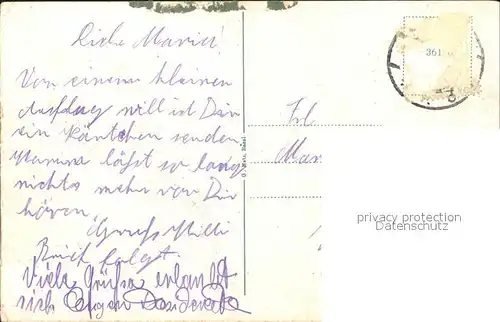 Liebe Maria!
Von einem kleinen
Ausflug will ich Dir
ein Kärtchen senden
Warum läßt so lang
nichts mehr von Dir
hören.
Gruß Willi
Brief folgt.
Viele Grüße erlaubt
sich Eugen
Frl
Mar
361
privacy protection
Datenschutz